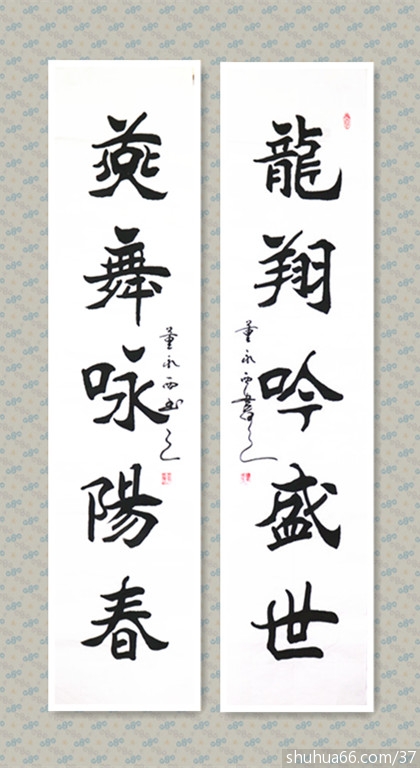 龍翔吟盛世
董永西書
燕舞咏陽春
董永西书
shuhua66.com/37